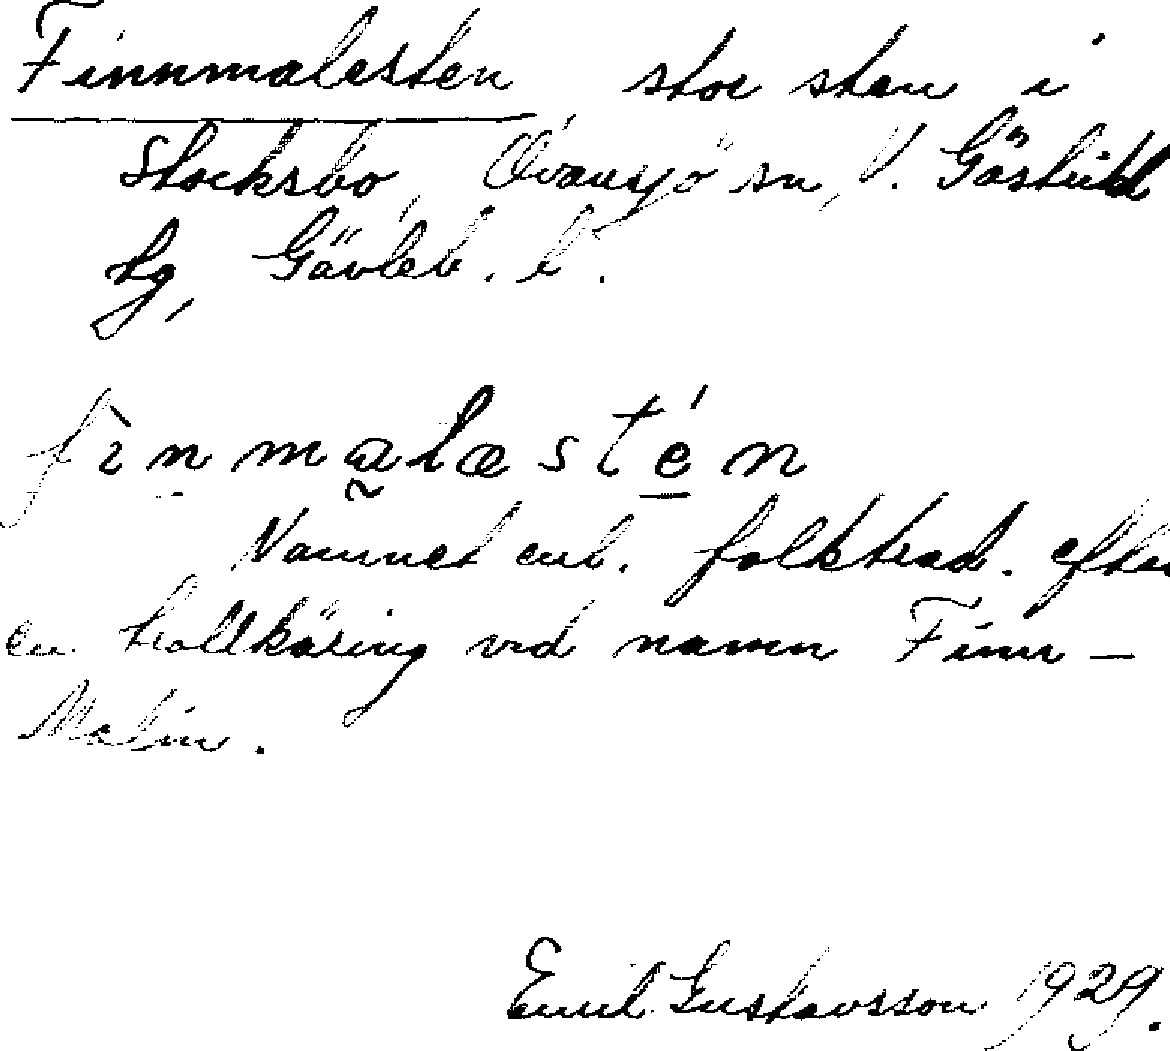 Finnmalesten stor sten i
Stocksbo, Ovansjö sn, V. Gästrikl
hg, Gävleb. l.
fìnmalæstén
Namnet enl. folktrad. efter
en trollkäring vid namn Finn-
Malin.
Emil Gustavsson 1929.